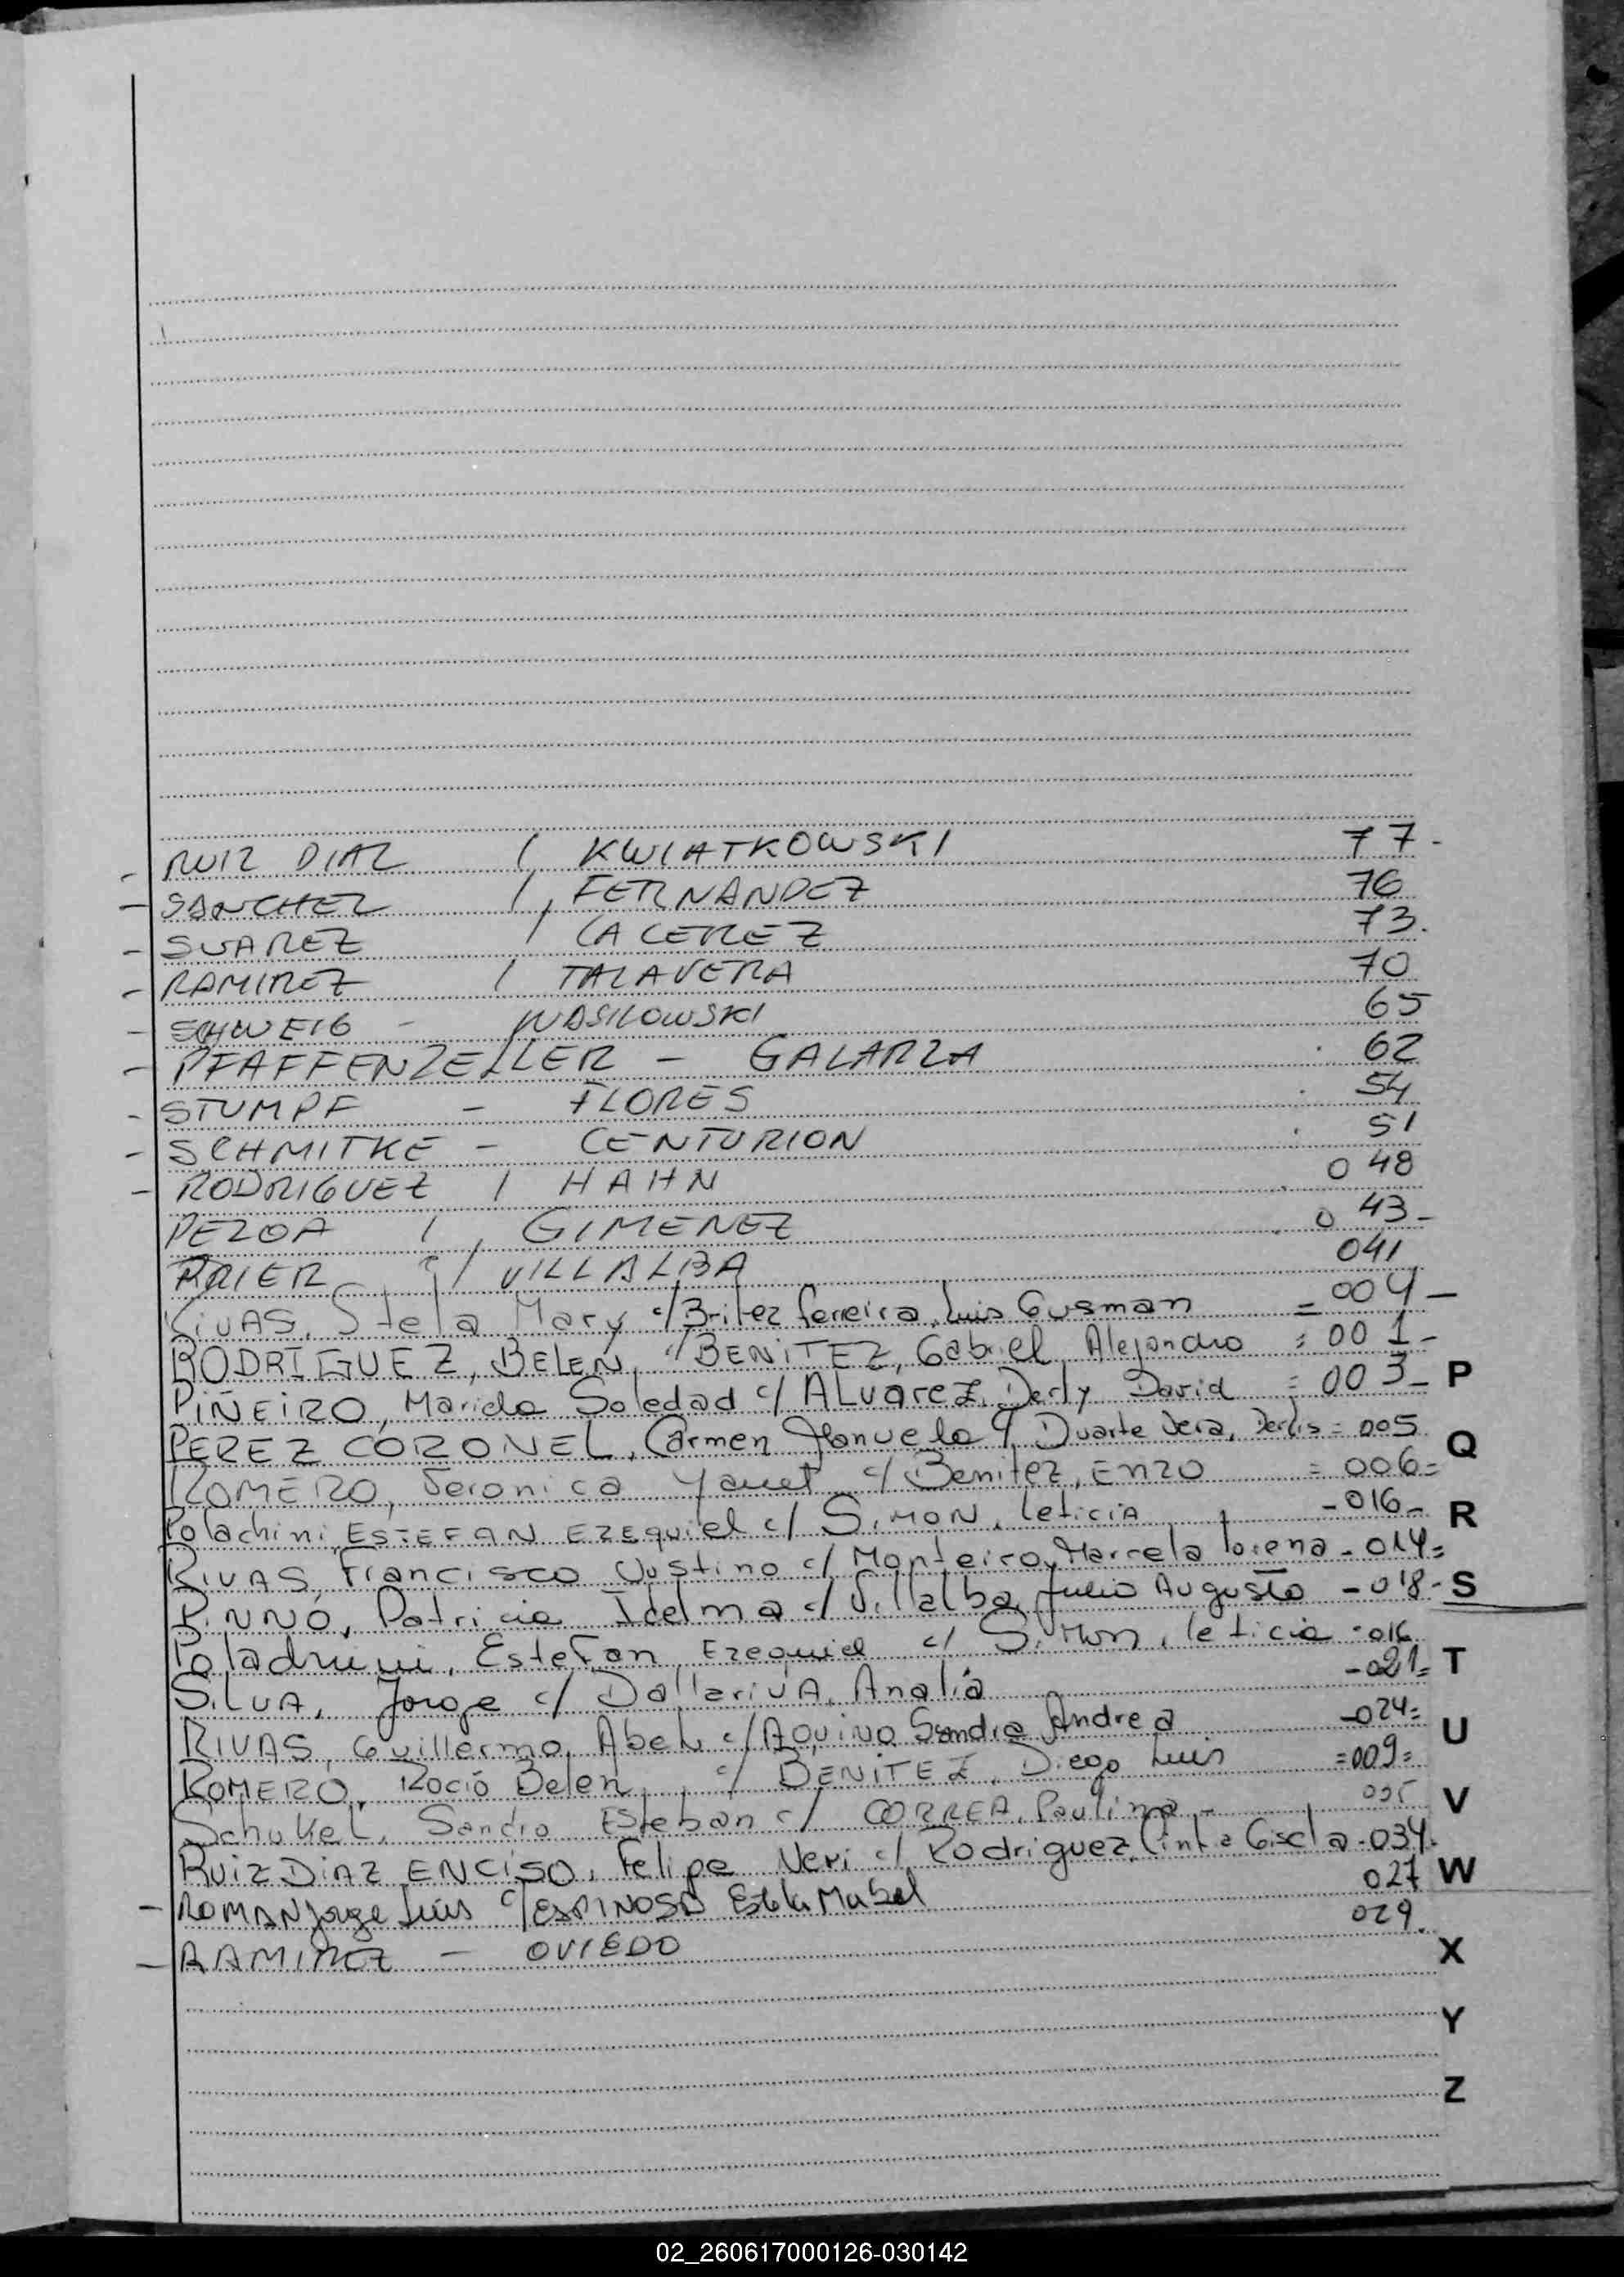 - RUIZ DIAZ / KWIATKOWSKI 77-
- SANCHEZ /, FERNANDEZ 76
- SUAREZ / CACEREZ 73.
- RAMIREZ / TALAVERA 70
- SCHWEIG - WASILOWSKI 65
- PFAFFENZELLER - GALARZA 62
- STUMPF - FLORES 54
- SCHMITKE - CENTURION 51
- RODRIGUEZ / HAHN 048
PEZOA /, GIMENEZ 043-
PRIER c/ VILLALBA 041
RIVAS, Stela Mary c/ Britez Ferreira, Luis Gusman = 004-
RODRIGUEZ, BELEN, c/ BENITEZ, Gabriel Alejandro = 001-
PIÑEIRO, Mariela Soledad c/ ALvarez, Derly David = 003- P
PEREZ CORONEL, Carmen Manuela c/ Duarte Vera, Derlis = 005 Q
ROMERO, Veronica Yanet c/ Benitez, ENZO = 006=
Polachini, ESTEFAN EZEquiel c/ SiMON, leticiA -016- R
RIVAS, Francisco Justino c/ Monteiro, Marcela lorena - 014=
PiNNÓ, Patricia Idelma c/ Villalba, Julio Augusto -018- S
Poladrini, Estefan Ezequiel c/ SiMon, leticia -016
SiLVA, Jorge c/ DallariVA, Analiá -021= T
RIVAS, Guillermo, Abel c/ AQUINO Sandra Andrea -024=
ROMERO, Rocío Belen, c/ BENITEZ, Diego Luis =009= U
SchuKeL, Sandro Esteban c/ CORREA, Paulina - V
RUIZ DIAZ ENCISO, Felipe Neri c/ Rodriguez, Cintia Gisela -034.
- ROMAN Jorge Luis c/ ESPINOSA Estela Mabel 027 W
- RAMIREZ - OVIEDO 029.
X
Y
Z
02_260617000126-030142